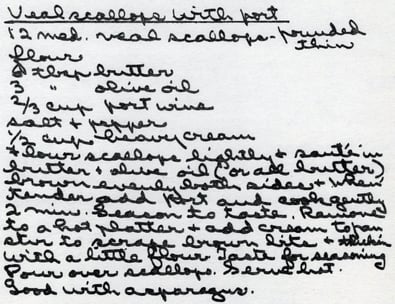 Veal scallops with port
12 med. veal scallops - pounded
thin
flour
8 tbsp butter
3 " olive oil
2/3 cup port wine
salt + pepper
1/3 cup heavy cream
flour scallops lightly + sauté in
butter + olive oil (or all butter)
brown evenly both sides + when
tender add port and cook gently
2 min. Season to taste. Remove
to a hot platter + add cream to pan
stir to scrape brown bits + thicken
with a little flour Taste for seasoning
Pour over scallops. Serve hot.
Good with asparagus.